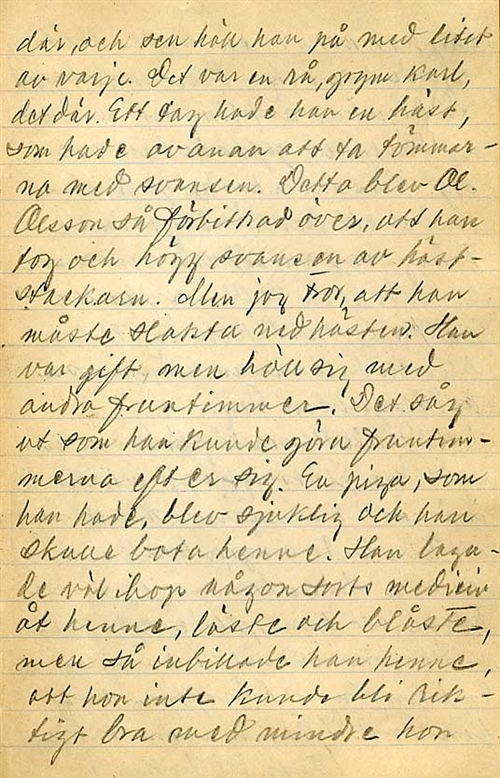 där, och sen höll han på med litet
av varje. Det var en rå, grym karl,
det där. Ett tag hade han en häst,
som hade ovanan att ta tömmar-
na med svansen. Detta blev Ol.
Olsson så förbittrad över, att han
tog och högg svansen av häst-
stackarn. Men jag tror, att han
måste slakta ned hästen. Han
var gift, men höll sig med
andra fruntimmer. Det såg
ut som han kunde göra fruntim-
merna efter sig. En piga, som
han hade, blev sjuklig och han
skulle bota henne. Han laga-
de väl ihop någon sorts medicin
åt henne, läste och blåste,
men så inbillade han henne,
att hon inte kunde bli rik-
tigt bra med mindre hon